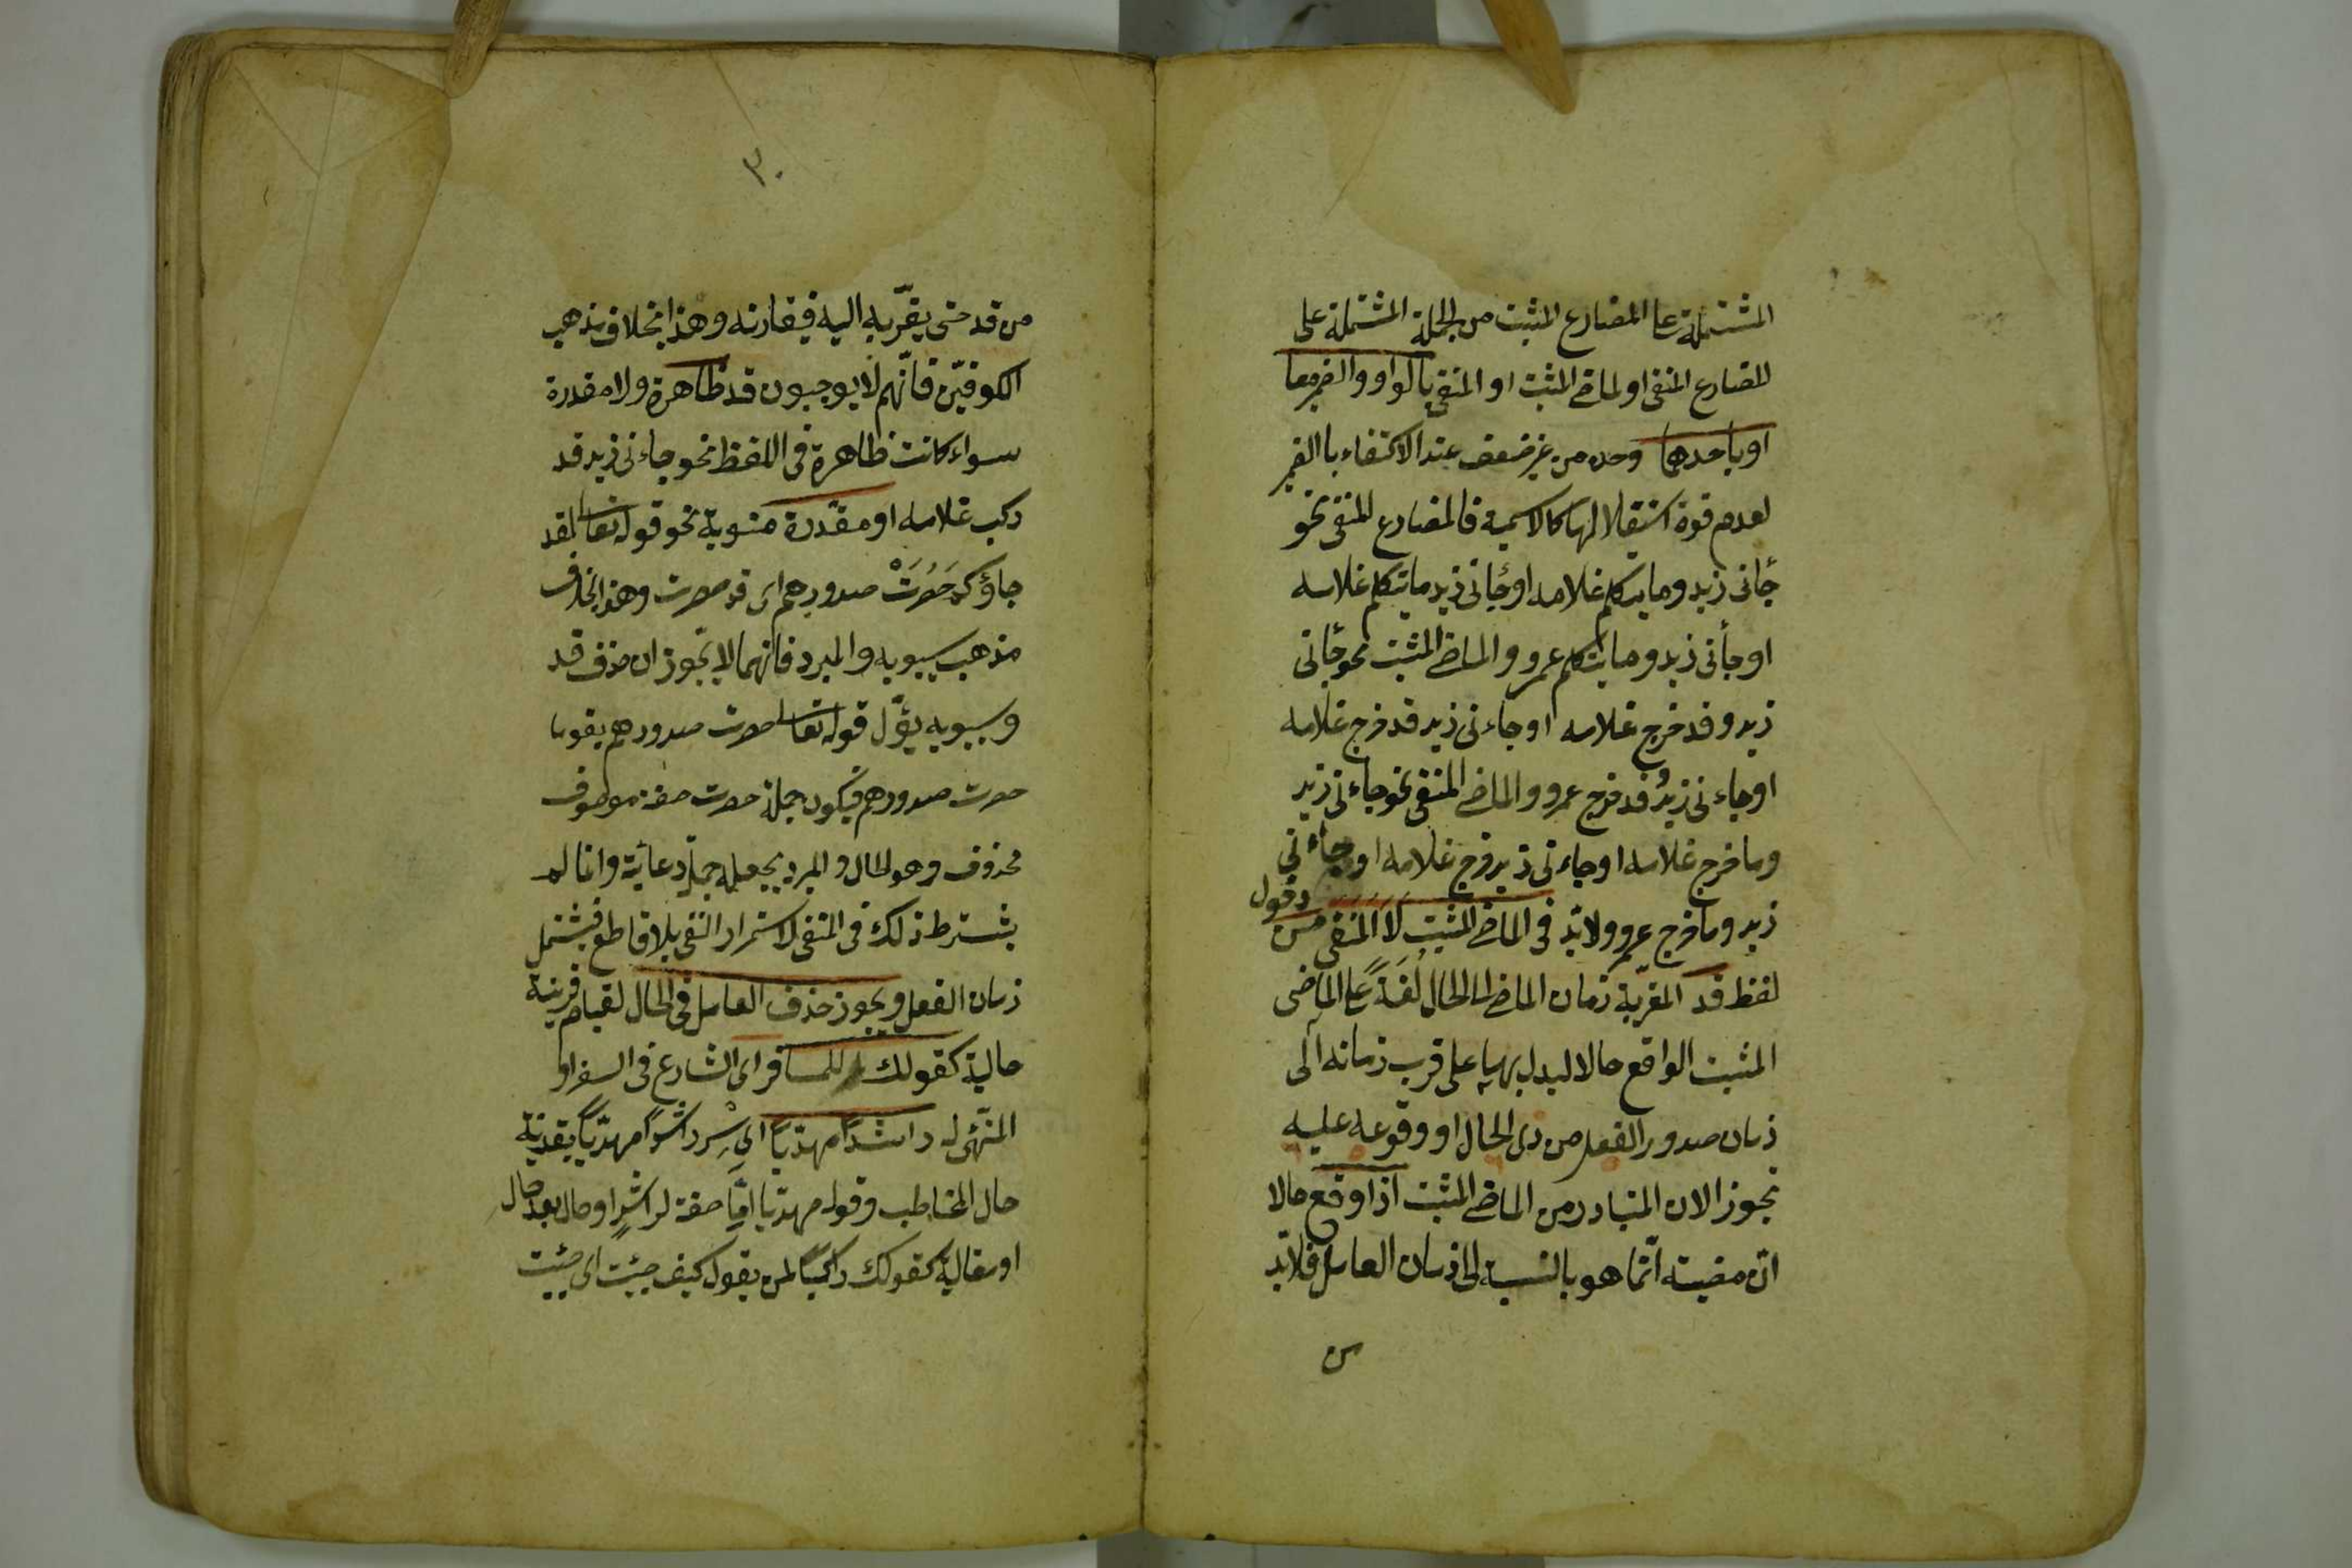 المشتملة على المضارع المثبت من الجملة المشتملة على
المضارع المنفى او لماضى المثبت او المنفى بالواو والضمير معا
او باحدهما وحده من غير ضعف عند الاكتفاء بالضمير
لعدم قوة استقلالها كالاسمية فالمضارع المنفى نحو
جأنى زيد وما يتكلم غلامه او جأنى زيد ما يتكلم غلامه
او جأنى زيد وما يتكلم عمرو والماضى المثبت نحو جأنى
زيد وقد خرج غلامه او جاءنى زيد قد خرج غلامه
او جاءنى زيدٌ وقد خرج عمرو والماضى المنفى نحو جاءنى زيد
وما خرج غلامه او جاءنى زيد خرج غلامه او جاءنى
زيد وما خرج عمرو ولا بدّ فى الماضى المثبت لا المنفى من دخول
لفظ قد المقرّبة زمان الماضى الى الحال لغةً على الماضى
المثبت الواقع حالا ليدل بها على قرب زمانه الى
زمان صدور الفعل من ذى الحال او وقوعه عليه
تجوزا لان المتبادر من الماضى المثبت اذا وقع حالا
انّ مضيته انّما هو بالنسبة الى زمان العامل فلا بدّ
٣٠
من قد حتى يقرّبه اليه فيقارنه وهذا بخلاف مذهب
الكوفيّن فانّهم لا يوجبون قد ظاهرة ولا مقدرة
سواء كانت ظاهرة فى اللفظ نحو جاءنى زيد قد
ركب غلامه او مقدّرة منوية نحو قوله تعالى لقد
جاؤكم حَصِرَتْ صدورهم اى قد حصرت وهذا بخلاف
مذهب سيبويه والمبرد فانهما لا يجوزان حذف قد
وسيبويه يؤّل قوله تعالى حصرت صدورهم بقوما
حصرت صدورهم فيكون جملة حصرت صفة موصوف
محذوف وهو الحال والمبرد يجعله جملة دعائية وانما لم
يشترط ذلك فى المنفى لاستمرار النفى بلا قاطع فيشتمل
زمان الفعل ويجوز حذف العامل فى الحال لقيام قرينة
حالية كقولك للمسافر اى الشارع فى السفر او
المتهّئ له راشدًا مهديًّا اى سِرْ راشدًا مهديًّا بقرينة
حال المخاطب وقوله مهديّا امّا صفة لراشدٍ او حال بعد حال
او مقالية كقولك راكبًا لمن يقول كيف جئت اى جئت